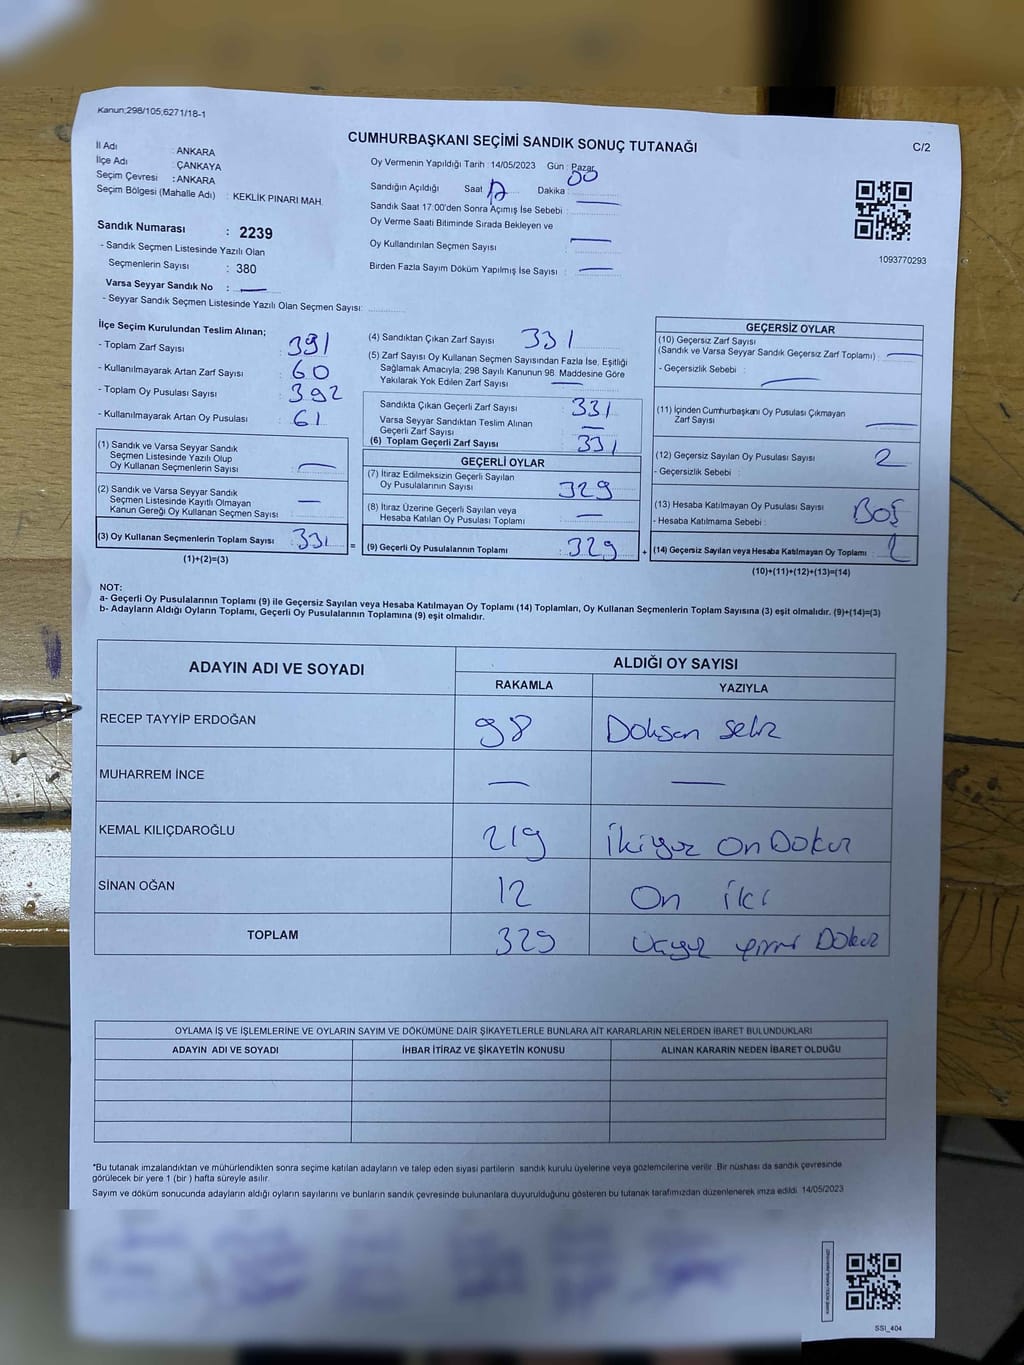 Kanun;298/105,6271/18-1
CUMHURBAŞKANI SEÇİMİ SANDIK SONUÇ TUTANAĞI
C/2
İl Adı : ANKARA
İlçe Adı : ÇANKAYA
Seçim Çevresi : ANKARA
Seçim Bölgesi (Mahalle Adı) : KEKLİK PINARI MAH.
Sandık Numarası : 2239
- Sandık Seçmen Listesinde Yazılı Olan
Seçmenlerin Sayısı : 380
Varsa Seyyar Sandık No : —
- Seyyar Sandık Seçmen Listesinde Yazılı Olan Seçmen Sayısı:
Oy Vermenin Yapıldığı Tarih : 14/05/2023 Gün : Pazar
Sandığın Açıldığı Saat 17 Dakika : 00
Sandık Saat 17:00'den Sonra Açımış İse Sebebi : —
Oy Verme Saati Bitiminde Sırada Bekleyen ve
Oy Kullandırılan Seçmen Sayısı : —
Birden Fazla Sayım Döküm Yapılmış İse Sayısı : —
1093770293
İlçe Seçim Kurulundan Teslim Alınan;
- Toplam Zarf Sayısı : 391
- Kullanılmayarak Artan Zarf Sayısı : 60
- Toplam Oy Pusulası Sayısı : 392
- Kullanılmayarak Artan Oy Pusulası : 61
(1) Sandık ve Varsa Seyyar Sandık
Seçmen Listesinde Yazılı Olup
Oy Kullanan Seçmenlerin Sayısı : —
(2) Sandık ve Varsa Seyyar Sandık
Seçmen Listesinde Kayıtlı Olmayan
Kanun Gereği Oy Kullanan Seçmen Sayısı : —
(3) Oy Kullanan Seçmenlerin Toplam Sayısı : 331
(1)+(2)=(3)
(4) Sandıktan Çıkan Zarf Sayısı : 331
(5) Zarf Sayısı Oy Kullanan Seçmen Sayısından Fazla İse, Eşitliği
Sağlamak Amacıyla, 298 Sayılı Kanunun 98. Maddesine Göre
Yakılarak Yok Edilen Zarf Sayısı : —
Sandıkta Çıkan Geçerli Zarf Sayısı : 331
Varsa Seyyar Sandıktan Teslim Alınan
Geçerli Zarf Sayısı : —
(6) Toplam Geçerli Zarf Sayısı : 331
GEÇERLİ OYLAR
(7) İtiraz Edilmeksizin Geçerli Sayılan
Oy Pusulalarının Sayısı : 329
(8) İtiraz Üzerine Geçerli Sayılan veya
Hesaba Katılan Oy Pusulası Toplamı : —
= (9) Geçerli Oy Pusulalarının Toplamı : 329
GEÇERSİZ OYLAR
(10) Geçersiz Zarf Sayısı
(Sandık ve Varsa Seyyar Sandık Geçersiz Zarf Toplamı) : —
- Geçersizlik Sebebi : —
(11) İçinden Cumhurbaşkanı Oy Pusulası Çıkmayan
Zarf Sayısı : —
(12) Geçersiz Sayılan Oy Pusulası Sayısı : 2
- Geçersizlik Sebebi :
(13) Hesaba Katılmayan Oy Pusulası Sayısı : BOŞ
- Hesaba Katılmama Sebebi :
+ (14) Geçersiz Sayılan veya Hesaba Katılmayan Oy Toplamı : 2
(10)+(11)+(12)+(13)=(14)
NOT:
a- Geçerli Oy Pusulalarının Toplamı (9) ile Geçersiz Sayılan veya Hesaba Katılmayan Oy Toplamı (14) Toplamları, Oy Kullanan Seçmenlerin Toplam Sayısına (3) eşit olmalıdır. (9)+(14)=(3)
b- Adayların Aldığı Oyların Toplamı, Geçerli Oy Pusulalarının Toplamına (9) eşit olmalıdır.
ADAYIN ADI VE SOYADI ALDIĞI OY SAYISI
RAKAMLA YAZIYLA
RECEP TAYYİP ERDOĞAN 98 Doksan sekiz
MUHARREM İNCE — —
KEMAL KILIÇDAROĞLU 219 İkiyüz On Dokuz
SİNAN OĞAN 12 On iki
TOPLAM 329 Üçyüz yirmi Dokuz
OYLAMA İŞ VE İŞLEMLERİNE VE OYLARIN SAYIM VE DÖKÜMÜNE DAİR ŞİKAYETLERLE BUNLARA AİT KARARLARIN NELERDEN İBARET BULUNDUKLARI
ADAYIN ADI VE SOYADI İHBAR İTİRAZ VE ŞİKAYETİN KONUSU ALINAN KARARIN NEDEN İBARET OLDUĞU
*Bu tutanak imzalandıktan ve mühürlendikten sonra seçime katılan adayların ve talep eden siyasi partilerin sandık kurulu üyelerine veya gözlemcilerine verilir. Bir nüshası da sandık çevresinde
görülecek bir yere 1 (bir ) hafta süreyle asılır.
Sayım ve döküm sonucunda adayların aldığı oyların sayılarını ve bunların sandık çevresinde bulunanlara duyurulduğunu gösteren bu tutanak tarafımızdan düzenlenerek imza edildi. 14/05/2023
SSI_404